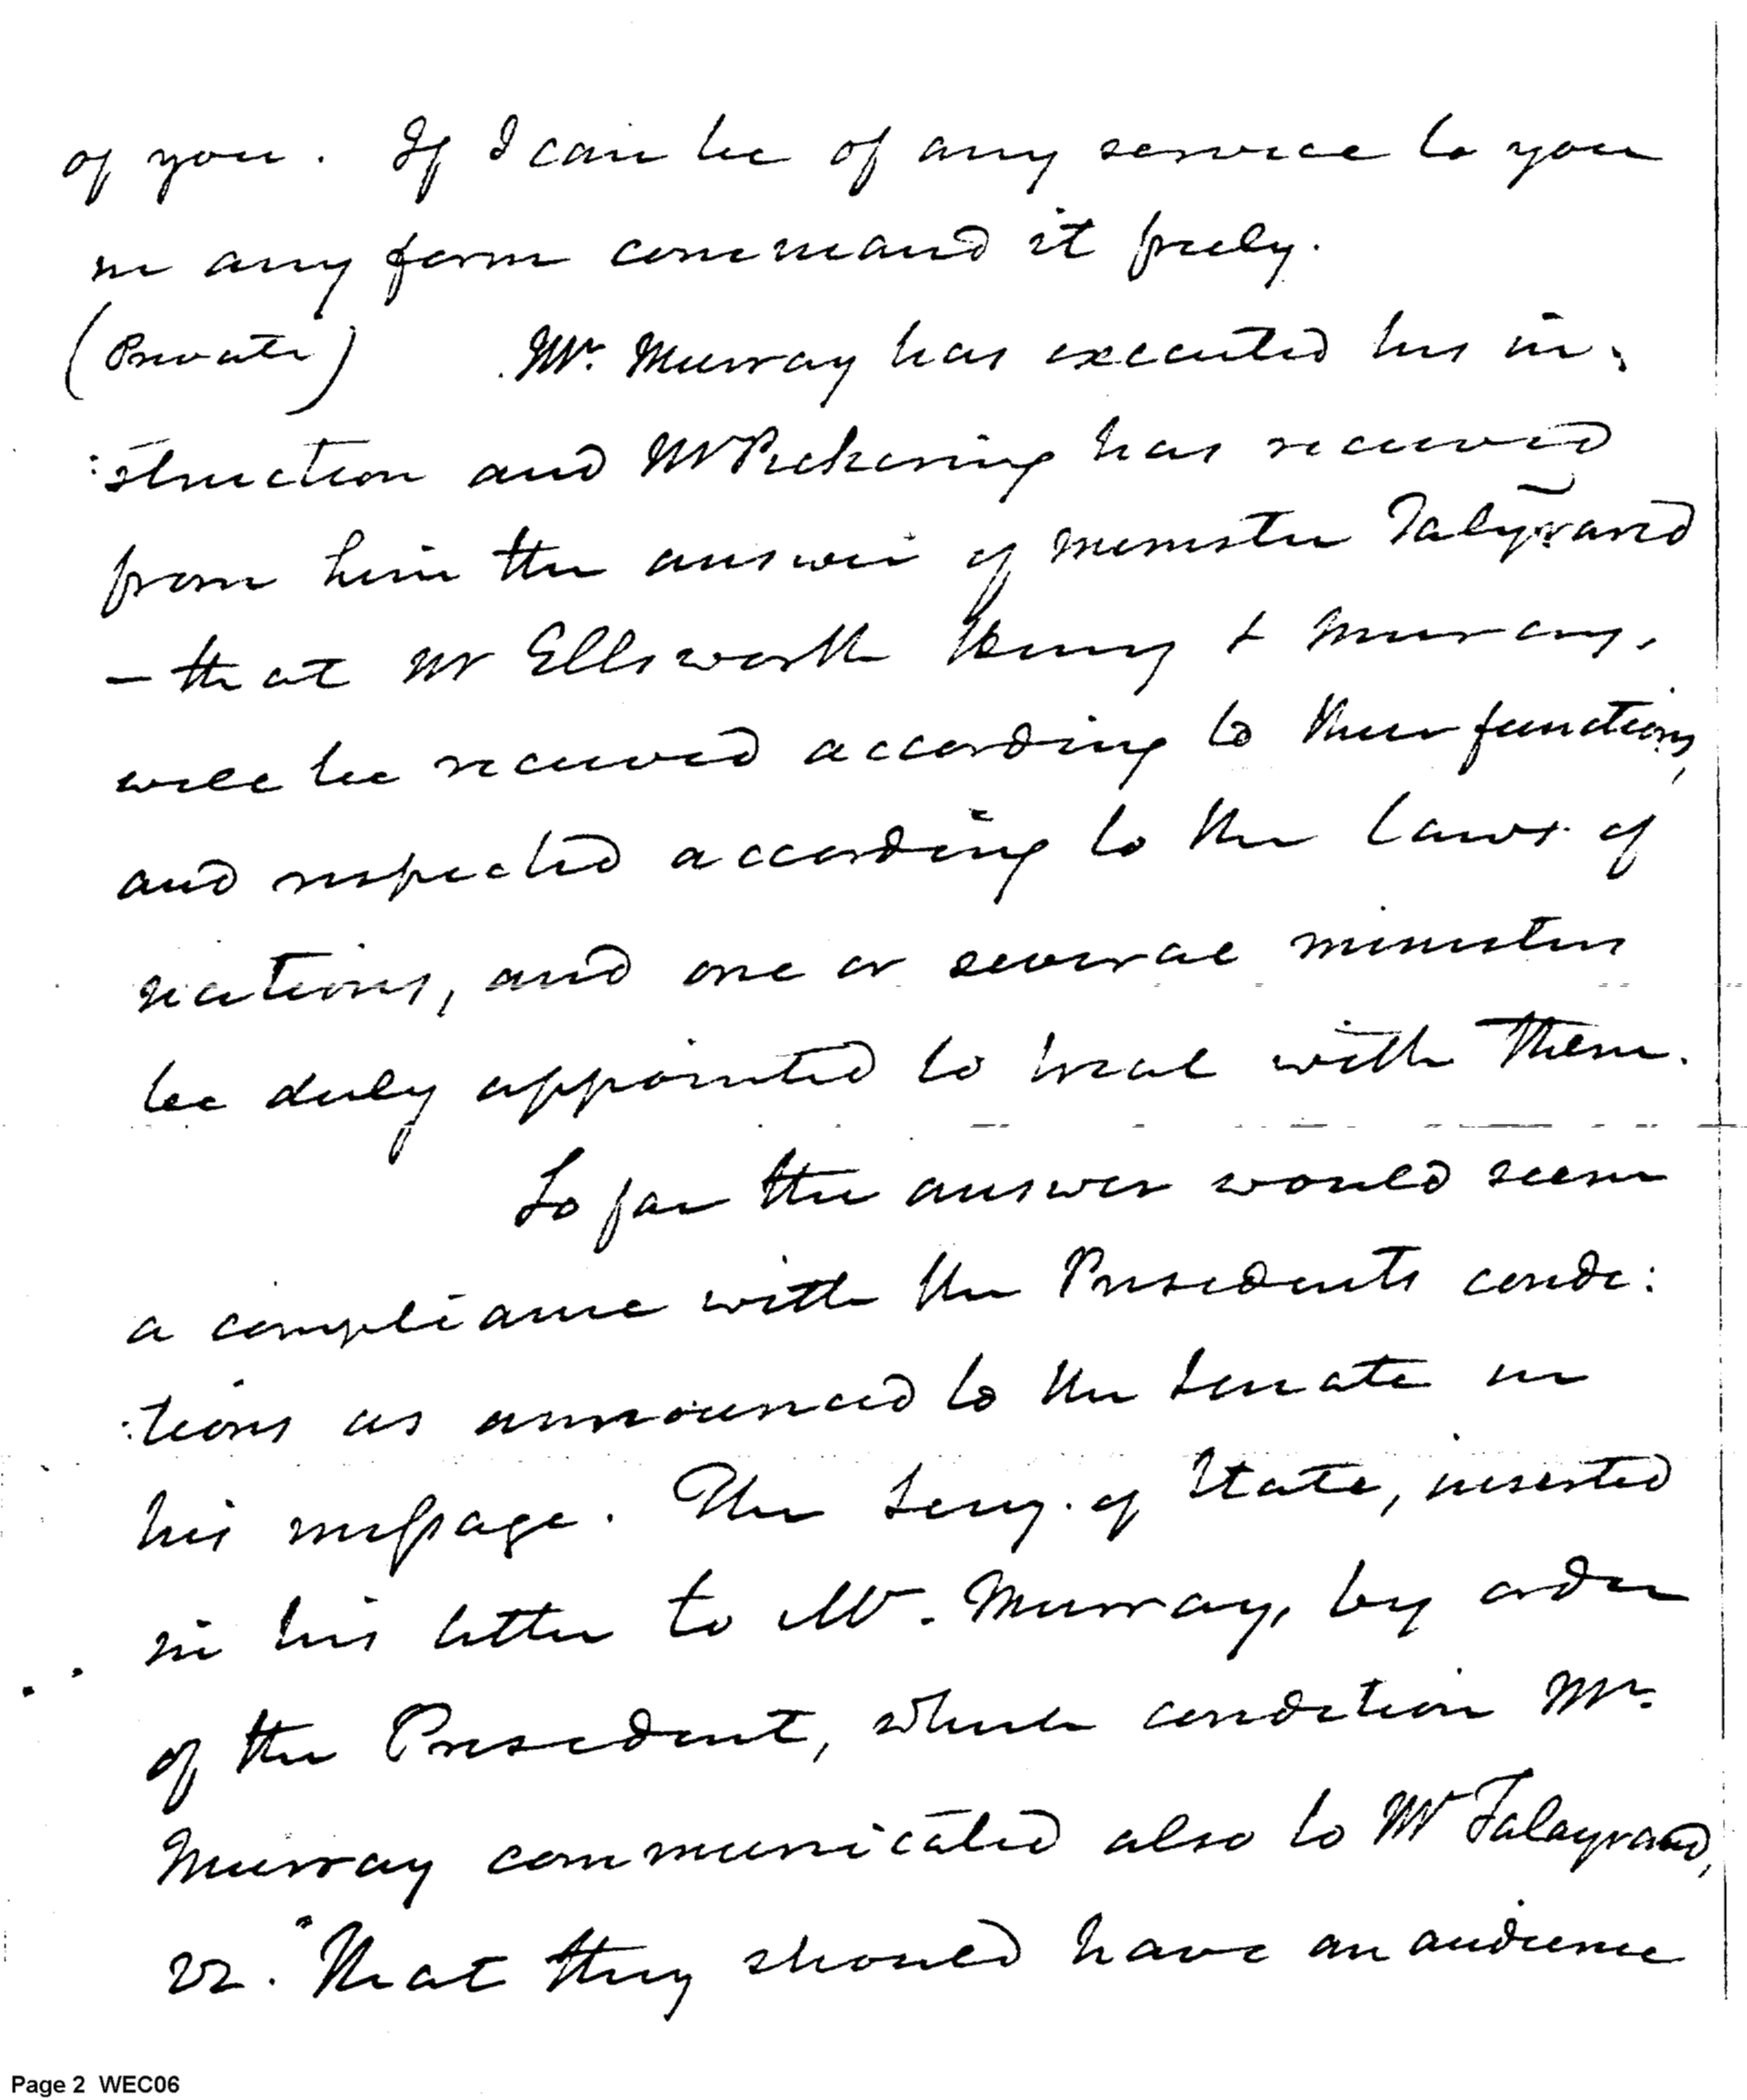 of you. If I can be of any service to you
in any form command it freely.
(Private) Mr. Murray has executed his in:
:struction and Mr Pickering has received
from him the answer of minister Talyrand
- that Mr Ellsworth Henry & Murray,
will be received according to their functions,
and respected according to the laws of
nations, and one or several ministers
be duly appointed to treat with them.
So far the answer would seem
a compliance with the Presidents condi:
:tions as announced to the Senate in
his message. The Secy. of State, inserted
in his letter to Mr. Murray, by order
of the President, which condition Mr.
Murray communicated also to Mr Talayrand,
viz. "That they should have an audience
Page 2 WEC06